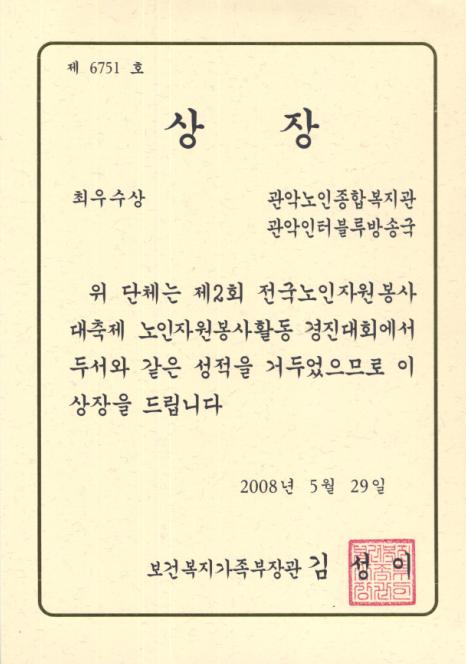 제 6751 호
상 장
최우수상 관악노인종합복지관
관악인터블루방송국
위 단체는 제2회 전국노인자원봉사
대축제 노인자원봉사활동 경진대회에서
두서와 같은 성적을 거두었으므로 이
상장을 드립니다
2008년 5월 29일
보건복지가족부장관 김 성 이